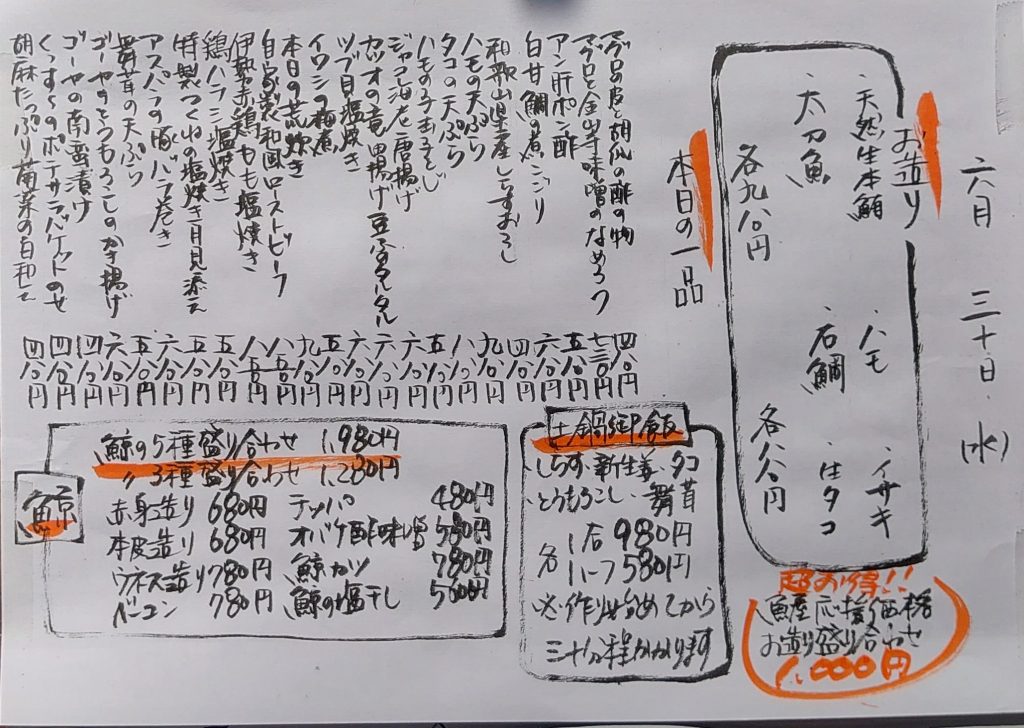 六月 三十日 (水)
お造り
・天然生本鮪 ・ハモ ・イサキ
・太刀魚 ・石鯛 ・活タコ
各九八〇円 各八八〇円
超お得!!
魚屋応援価格
お造り盛り合わせ
1,000円
本日の一品
マグロの皮と胡瓜の酢の物 四八〇円
マグロと金山寺味噌のなめろう 七三〇円
アン肝ポン酢 五八〇円
白甘鯛の煮こごり 六八〇円
和歌山県産しらすおろし 四八〇円
ハモの天ぷら 九八〇円
タコの天ぷら 八八〇円
ハモの子玉子とじ 五八〇円
ジャコ海老唐揚げ 六八〇円
カツオの竜田揚げ豆ふのタルタル 六八〇円
ツブ貝塩焼き 六八〇円
イワシの梅煮 五八〇円
本日の荒炊き
自家製和風ローストビーフ
伊勢赤鶏もも塩焼き
鶏ハラミ塩焼き 五八〇円
特製つくねの塩焼き月見添え 五八〇円
アスパラの豚バラ巻き 六八〇円
舞茸の天ぷら 五八〇円
ゴーヤのとうもろこしのかき揚げ 六八〇円
ゴーヤの南蛮漬け 四八〇円
くんたまのポテサラバケットのせ 四八〇円
胡麻たっぷり菊菜の白和え 四八〇円
土鍋御飯
しらす・新生姜・タコ
とうもろこし・舞茸
各 1合 980円
ハーフ 580円
※作り始めてから
三十分程かかります
鯨
鯨の5種盛り合わせ 1,980円
〃3種盛り合わせ 1,280円
赤身造り 680円 テッパ 480円
本皮造り 680円 オバケ酢味噌 580円
ウネス造り 780円 鯨カツ 780円
ベーコン 780円 鯨の塩干し 500円